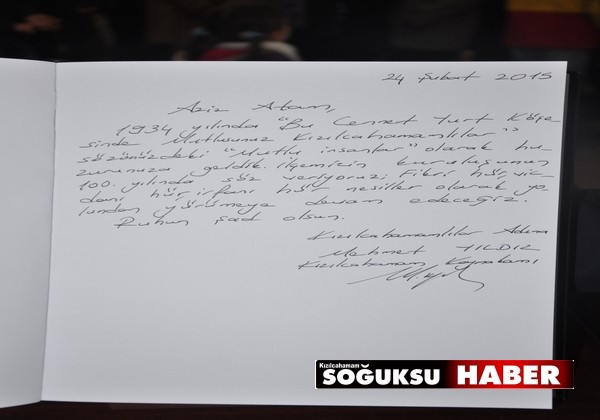 24 Şubat 2015
Aziz Atam,
1934 yılında "Bu Cennet Yurt Köşe
sinde Mutlusunuz Kızılcahamamlılar"
sözünüzdeki "Mutlu insanlar" olarak hu-
zurunuza geldik. İlçemizin kuruluşunun
100. yılında söz veriyoruz; Fikri hür, vic-
danı hür, irfanı hür nesiller olarak yo-
lundan yürümeye devam edeceğiz.
Ruhun şad olsun.
Kızılcahamamlılar Adına
Mehmet YILDIZ
Kızılcahamam Kaymakamı
Kızılcahamam
SOĞUKSU HABER